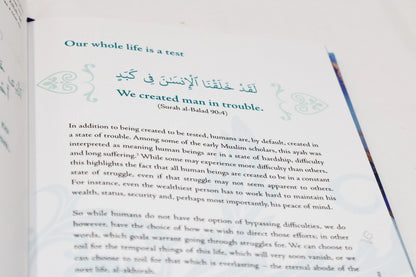 Our whole life is a test
لَقَدْ خَلَقْنَا ٱلْإِنسَـٰنَ فِى كَبَدٍ
We created man in trouble.
(Surah al-Balad 90:4)
In addition to being created to be tested, humans are, by default, created in
a state of trouble. Among some of the early Muslim scholars, this ayah was
interpreted as meaning human beings are in a state of hardship, difficulty
and long suffering. While some may experience more difficulty than others,
this highlights the fact that all human beings are created to be in a constant
state of struggle, even if that struggle may not seem apparent to others.
For instance, even the wealthiest person has to work hard to maintain his
wealth, status, security and, perhaps most importantly, his peace of mind.
So while humans do not have the option of bypassing difficulties, we do
however, have the choice of how we wish to direct those efforts; in other
words, which goals warrant going through struggles for. We can choose to
toil for the temporal things of this life, which will very soon vanish, or we
can choose to toil for that which is everlasting – the eternal abode of the
next life, al-akhirah.